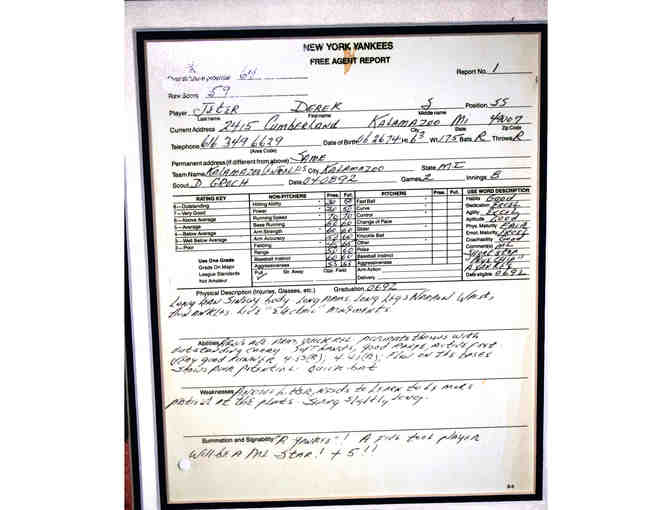 NEW YORK YANKEES
FREE AGENT REPORT
Overall future potential 64
Report No. 1
Raw Score 59
Player JETER DEREK S Position SS
Last name First name Middle name
Current Address 2415 Cumberland KALAMAZOO MI 49007
City State Zip Code
Telephone 616 349 6639 Date of Birth 06 26 74 Ht. 6 3 Wt. 175 Bats R Throws R
(Area Code)
Permanent address (if different from above) SAME
Team Name KALAMAZOO City KALAMAZOO State MI
Scout D. GROCH Date 040892 Games 2 Innings 8
RATING KEY NON-PITCHERS Pres. Fut. PITCHERS Pres. Fut. USE WORD DESCRIPTION
8—Outstanding Hitting Ability Fast Ball Habits Good
7—Very Good Power Curve Dedication Excel
6—Above Average Running Speed Control Agility Excel
5—Average Base Running 60 60 Change of Pace Aptitude Good
4—Below Average Arm Strength 60 60 Slider Phys. Maturity FAIR
3—Well Below Average Arm Accuracy Knuckle Ball Emot. Maturity Excel
2—Poor Fielding Other Coachability Good
Range Poise Comment(s) ML
Use One Grade Baseball Instinct 60 60 Baseball Instinct SHORTSTOP
Grade On Major Aggressiveness 55 65 Aggressiveness
League Standards Pull Str. Away Opp. Field Arm Action A YANKEE
Not Amateur Delivery Date eligible 0692
Physical Description (Injuries, Glasses, etc.) Graduation 0692
Long lean sinewy body. Long Arms, Long Legs Narrow Waist,
thin ankles. Live "Electric" movements.
Abilities quick rel. Accurate throws with
outstanding carry. Soft hands, good range, active feet
Very good runner Flow on the bases
Shows pwr potential. Quick bat
Weaknesses Anxious hitter, needs to learn to be more
patient at the plate. Swing slightly long.
Summation and Signability "A Yankee"! A five tool player
Will be A ML Star! + 5!!